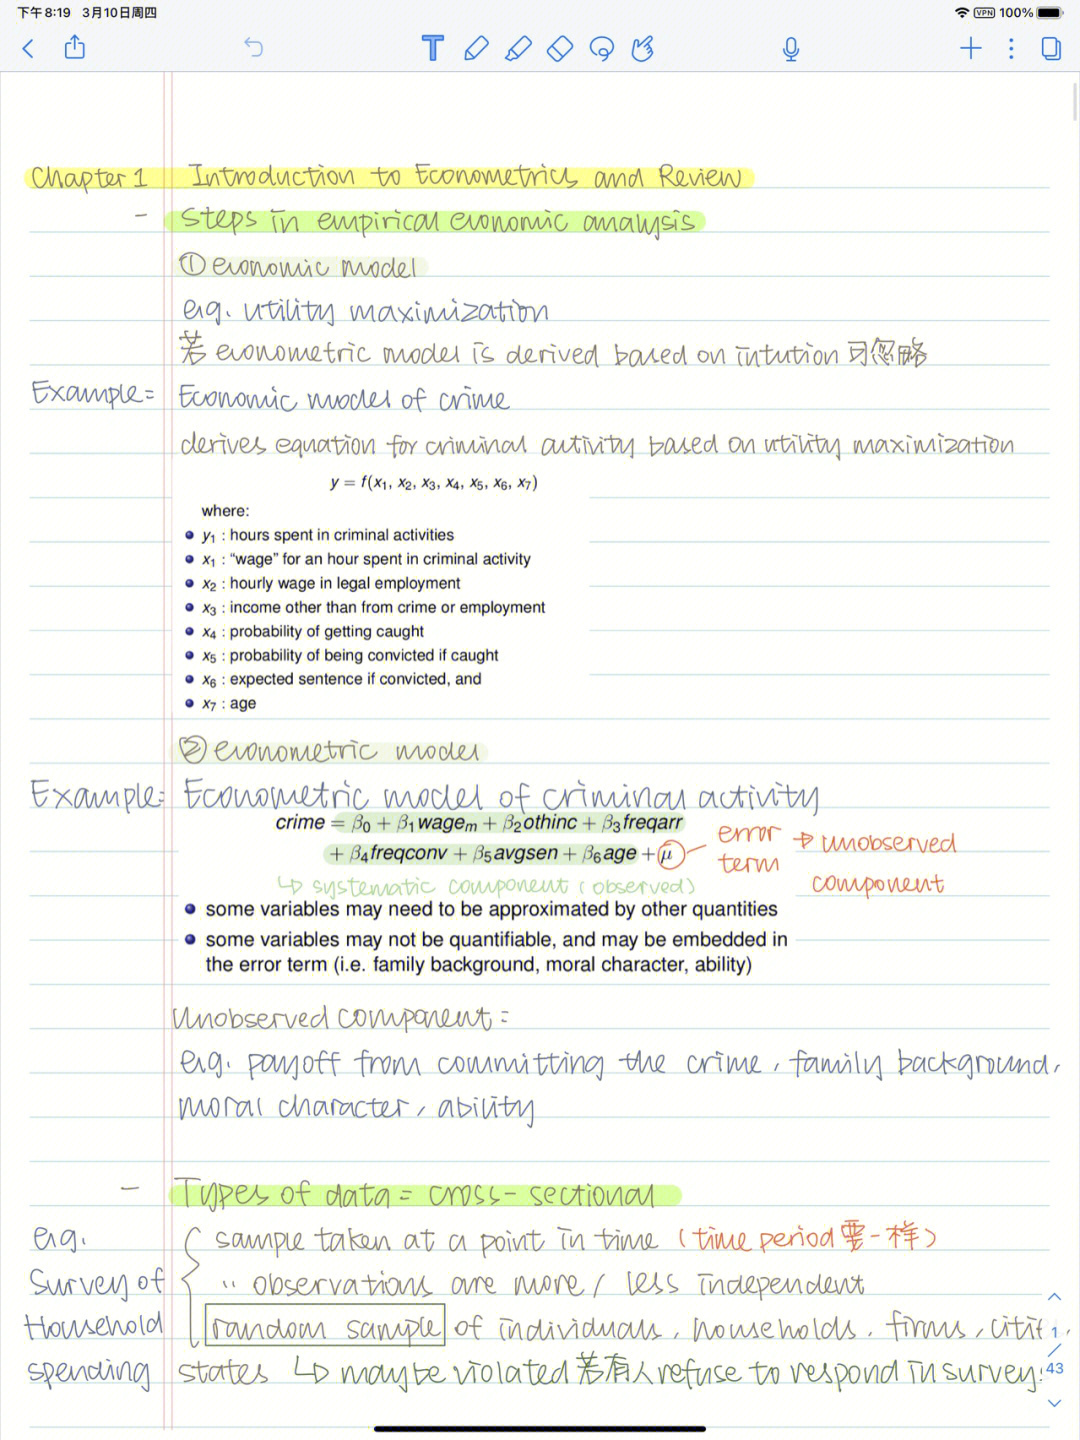 下午8:19 3月10日周四
VPN 100%
Chapter 1 Introduction to Econometrics and Review
- Steps in empirical economic analysis
① economic model
e.g. utility maximization
若 econometric model is derived based on intution 可忽略
Example: Economic model of crime
derives equation for criminal activity based on utility maximization
y = f(x₁, x₂, x₃, x₄, x₅, x₆, x₇)
where:
• y₁ : hours spent in criminal activities
• x₁ : “wage” for an hour spent in criminal activity
• x₂ : hourly wage in legal employment
• x₃ : income other than from crime or employment
• x₄ : probability of getting caught
• x₅ : probability of being convicted if caught
• x₆ : expected sentence if convicted, and
• x₇ : age
② econometric model
Example: Econometric model of criminal activity
crime = β₀ + β₁wageₘ + β₂othinc + β₃freqarr
+ β₄freqconv + β₅avgsen + β₆age + μ
error term → unobserved component
↳ systematic component (observed)
• some variables may need to be approximated by other quantities
• some variables may not be quantifiable, and may be embedded in
the error term (i.e. family background, moral character, ability)
Unobserved component:
e.g. payoff from committing the crime, family background,
moral character, ability
- Types of data: cross-sectional
e.g. sample taken at a point in time (time period 要一样)
Survey of ∵ observations are more / less independent
Household random sample of individuals, households, firms,
spending states ↳ maybe violated 若有人 refuse to respond in survey.
1
/
43